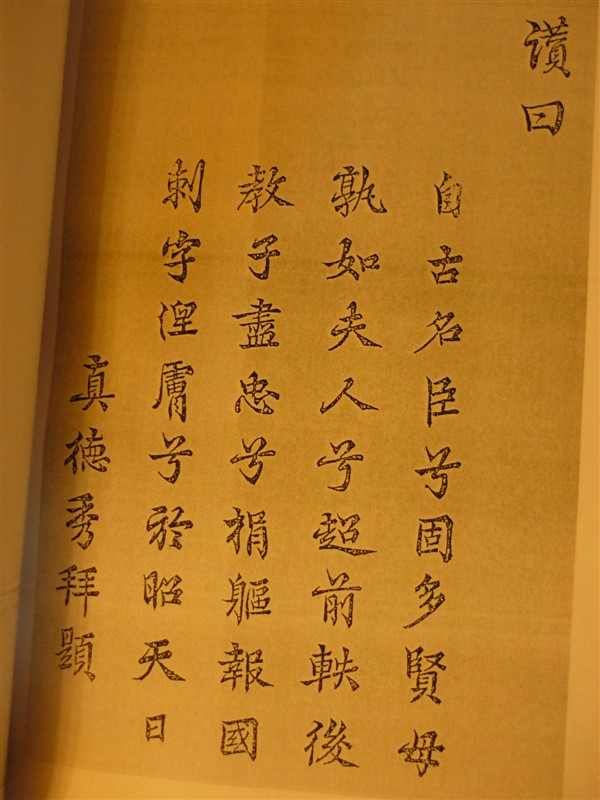 讃曰
自古名臣兮固多賢母
孰如夫人兮超前軼後
教子盡忠兮捐軀報國
刺字涅膚兮於昭天日
真德秀拜題